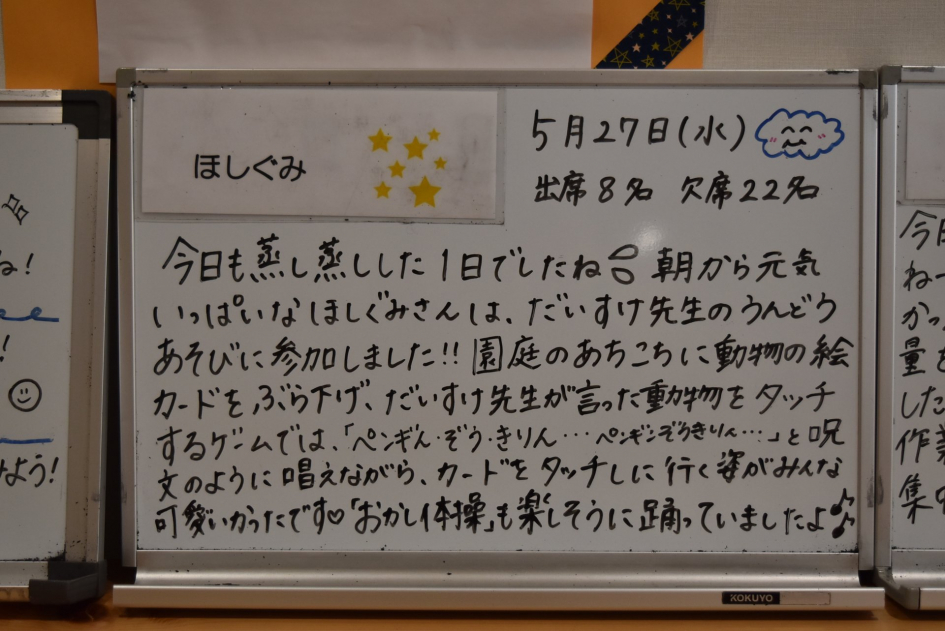 ほしぐみ
5月27日(水)
出席8名 欠席22名
今日も蒸し蒸しした1日でしたね 朝から元気
いっぱいなほしぐみさんは、だいすけ先生のうんどう
あそびに参加しました!! 園庭のあちこちに動物の絵
カードをぶら下げ、だいすけ先生が言った動物をタッチ
するゲームでは、「ペンギん・ぞう・きりん…ペンギンぞうきりん…」と呪
文のように唱えながら、カードをタッチしに行く姿がみんな
可愛いかったです♡「おかし体操」も楽しそうに踊っていましたよ♪
KOKUYO
ね!
!
みよう!
今日
ねー
かっ
量を
した
作業
集中